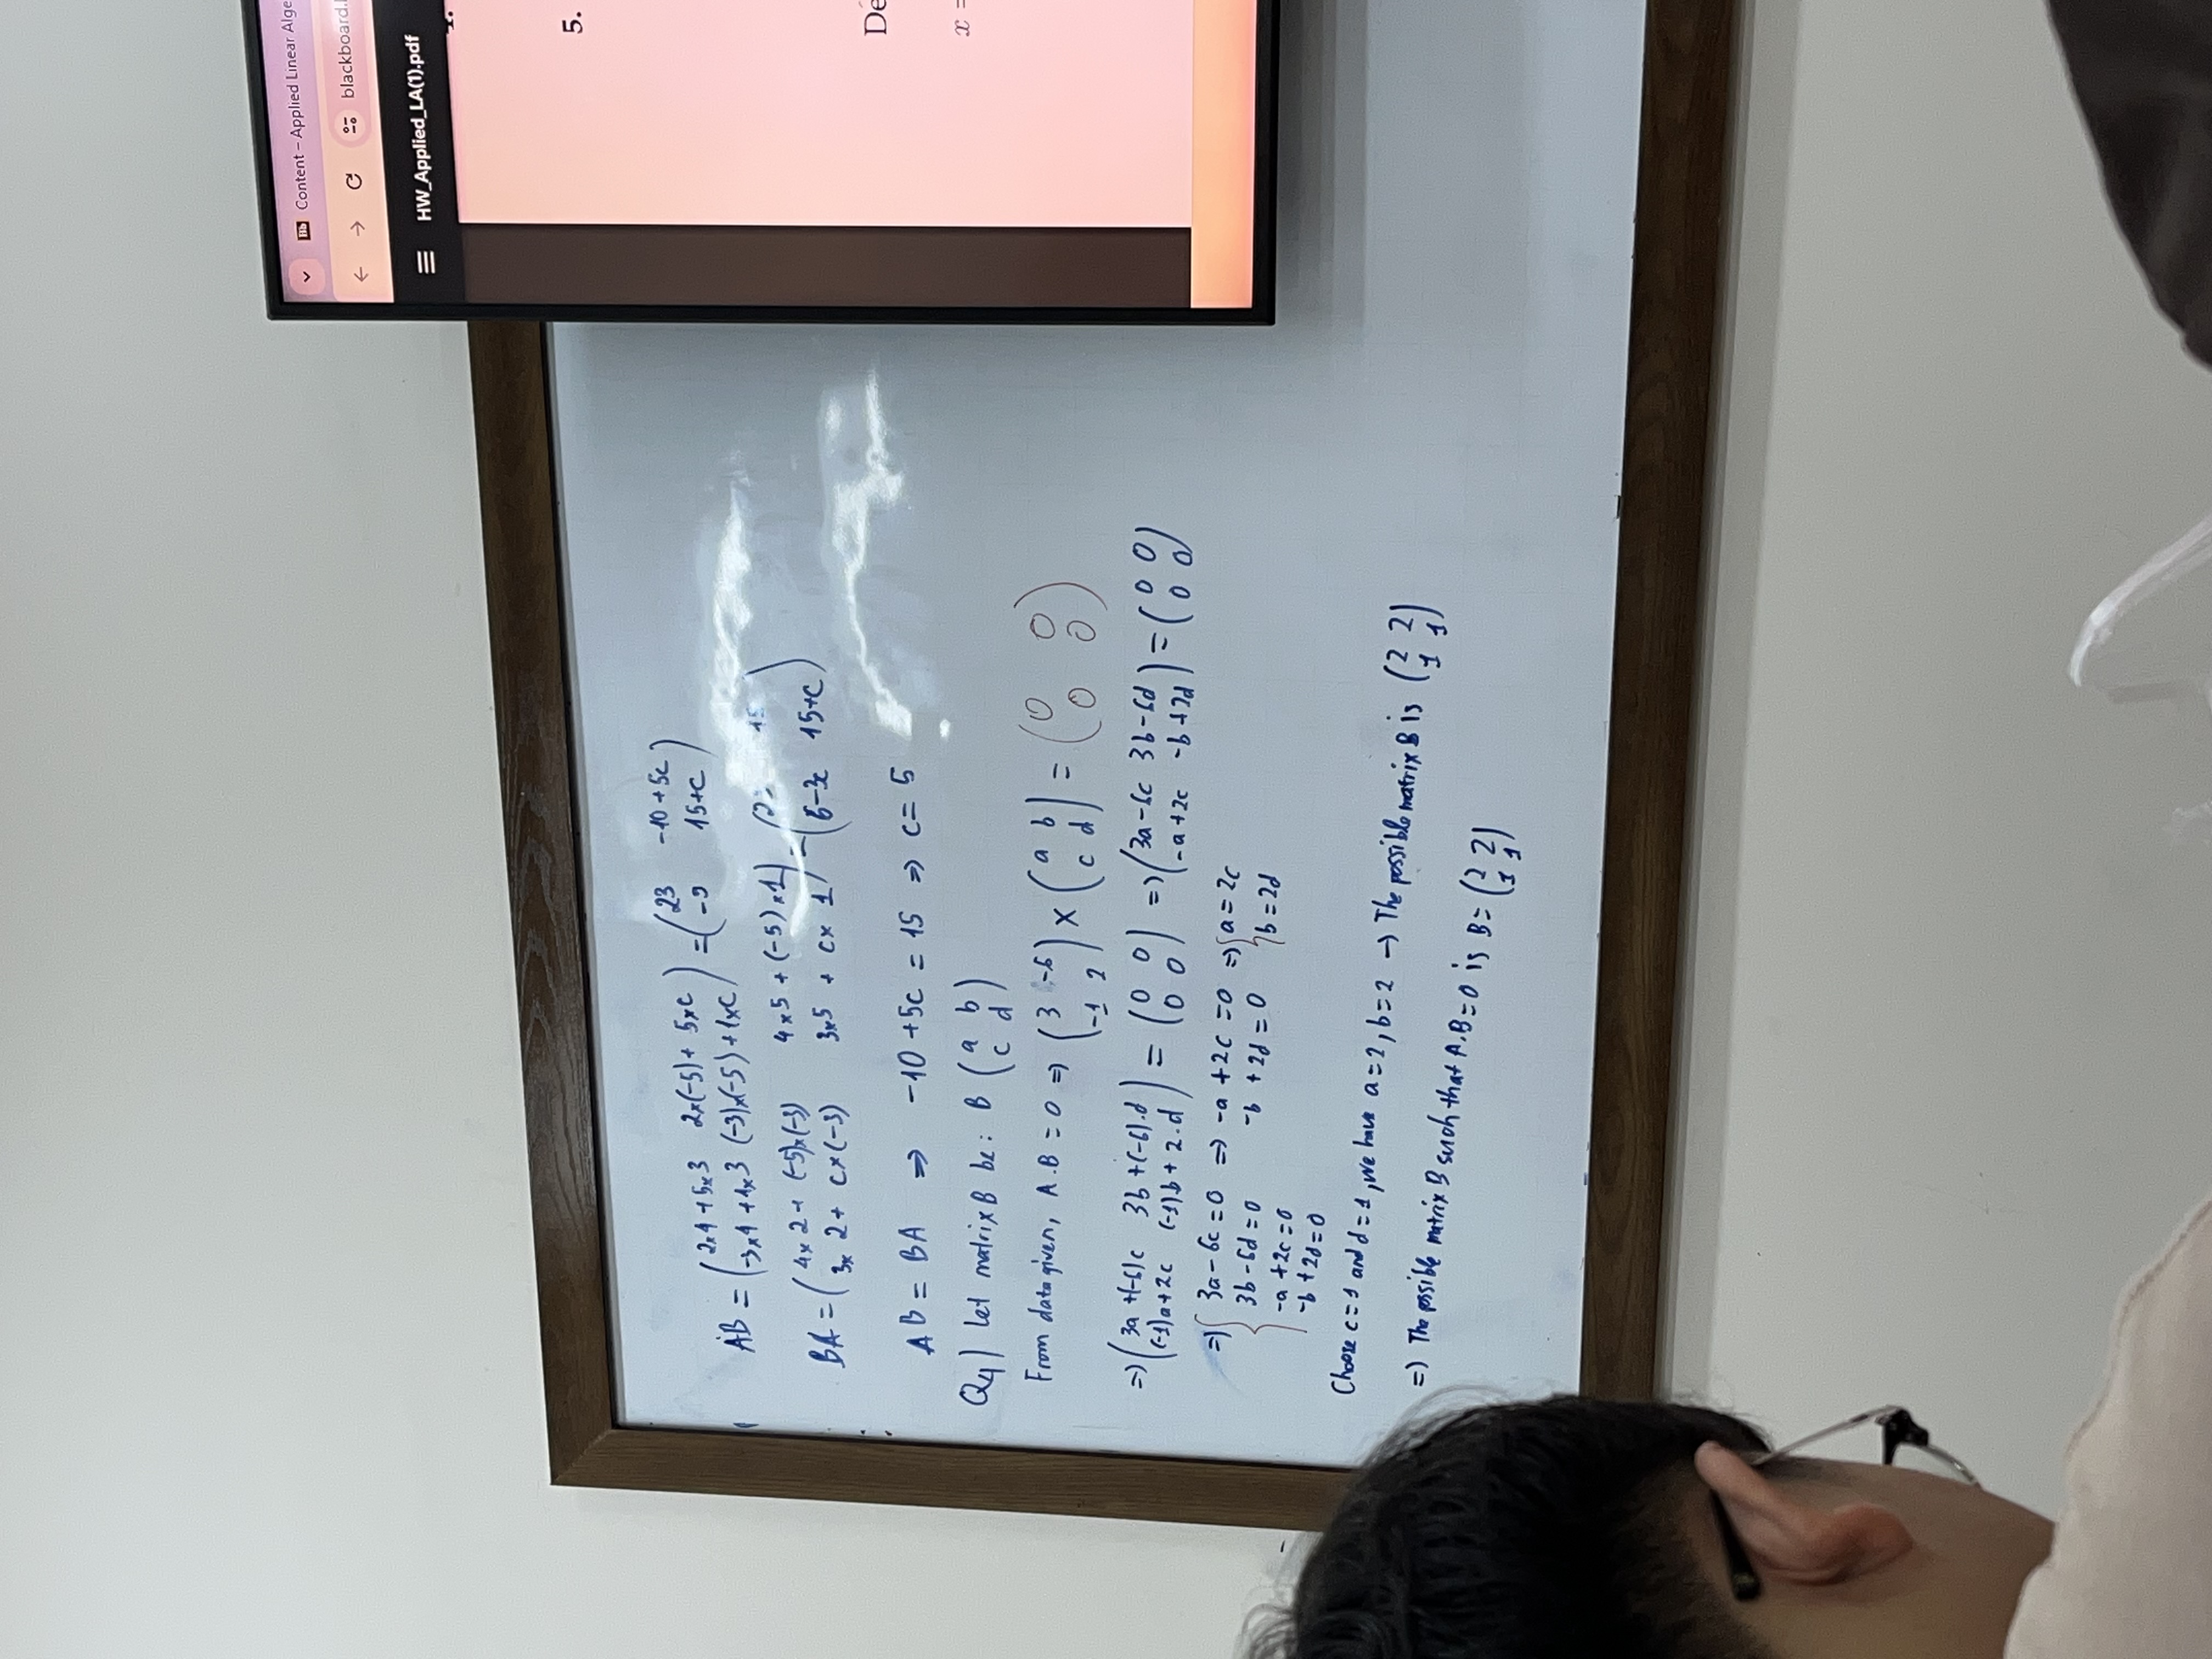 AB = (2x4 + 5x3 2x(-5) + 5xc
-3x4 + 1x3 (-3)x(-5) + 1xc) = (23 -10 + 5c
-9 15+c)
BA = (4x2 + (-5)x(-3) 4x5 + (-5)x1
3x2 + cx(-3) 3x5 + cx1) = ( 15
6-3c 15+c)
AB = BA ⇒ -10 + 5c = 15 ⇒ c = 5
Q4) Let matrix B be: B (a b
c d)
From data given, A.B = 0 ⇒ (3 -6
-1 2) x (a b
c d) = (0 0
0 0)
⇒ (3a + (-6)c 3b + (-6).d
(-1)a + 2c (-1)b + 2.d) = (0 0
0 0) ⇒ (3a - 6c 3b - 6d
-a + 2c -b + 2d) = (0 0
0 0)
⇒ { 3a - 6c = 0 ⇒ -a + 2c = 0 ⇒ { a = 2c
3b - 6d = 0 -b + 2d = 0 b = 2d
-a + 2c = 0
-b + 2d = 0
Choose c = 1 and d = 1, we have a = 2, b = 2 → The possible matrix B is (2 2
1 1)
⇒ The possible matrix B such that A.B = 0 is B = (2 2
1 1)
Content – Applied Linear Alge
blackboard.
HW_Applied_LA(1).pdf
5.
De
x =